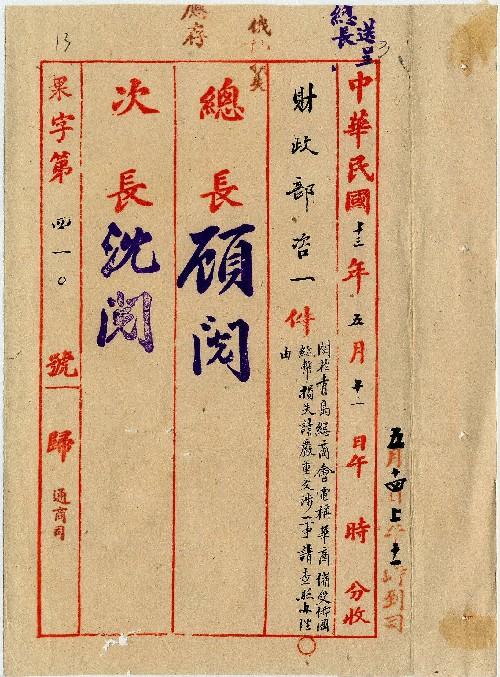 送呈
總長
3
中華民國十三年五月十一日午 時 分收
五月十四日上午十一時到司
財政部咨一件
關於青島總商會電稱華商
損失請嚴重交涉一事請查照辦理
由
總長
顧閱
次長
沈閱
應存
13
果字第四一〇號
歸 通商司